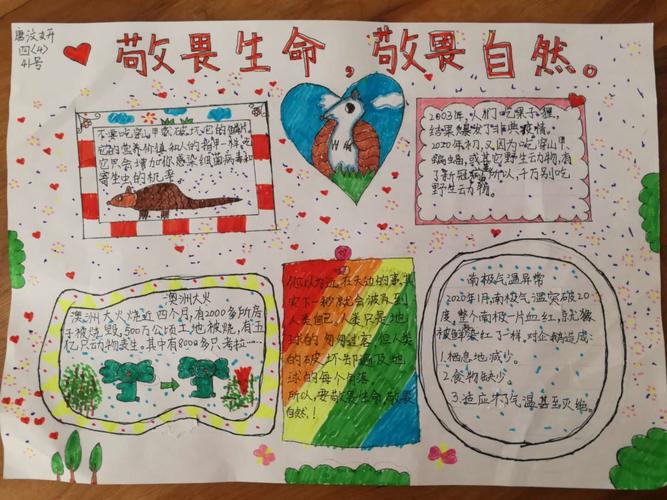 唐汶妍
四(4)
41号
敬畏生命,敬畏自然。
不要吃穿山甲或破坏它的鳞片,
它的营养价值和人的指甲一样,吃
它只会增加你感染细菌病毒和
寄生虫的机率
2003年,人们吃果子狸,
结果爆发了非典疫情。
2020年初,又因为吃穿山甲
蝙蝠,或其它野生动物,有
了新冠病 所以,千万别吃
野生动物。
澳洲大火
澳洲大火烧近四个月,有2000多所房
子被烧毁,500万公顷土地被烧,有五
亿只动物丧生。其中有8000多只考拉……
你以为远在天边的事,其
实下一秒就会被轮到
人类自己。人类只是地
球的匆匆过客。但人类
的破坏却遍及地
球的每个角落
所以,要敬畏生命,敬畏
自然!
南极气温异常
2020年1月,南极气温突破20
度。整个南极一片血红,就犹
被鲜染红了一样。对企鹅造成:
1.栖息地减少。
2.食物缺少。
3.适应不了气温甚至灭绝。